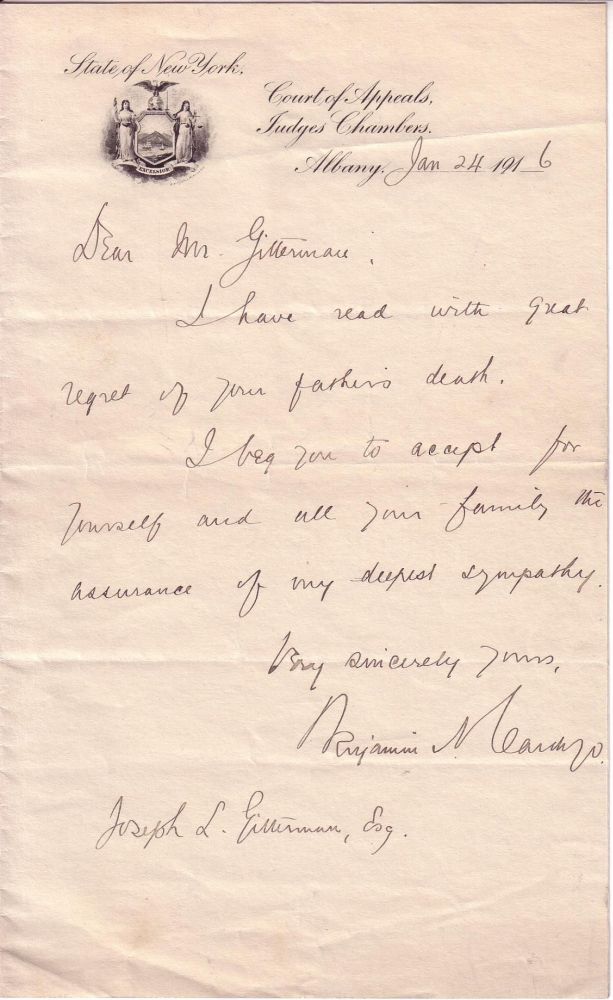 State of New York.
Court of Appeals,
Judges Chambers.
EXCELSIOR
Albany, Jan 24 1916
Dear Mr. Gitterman,
I have read with great
regret of your father's death.
I beg you to accept for
yourself and all your family the
assurance of my deepest sympathy.
Very sincerely yours,
Benjamin N. Cardozo.
Joseph L. Gitterman, Esq.